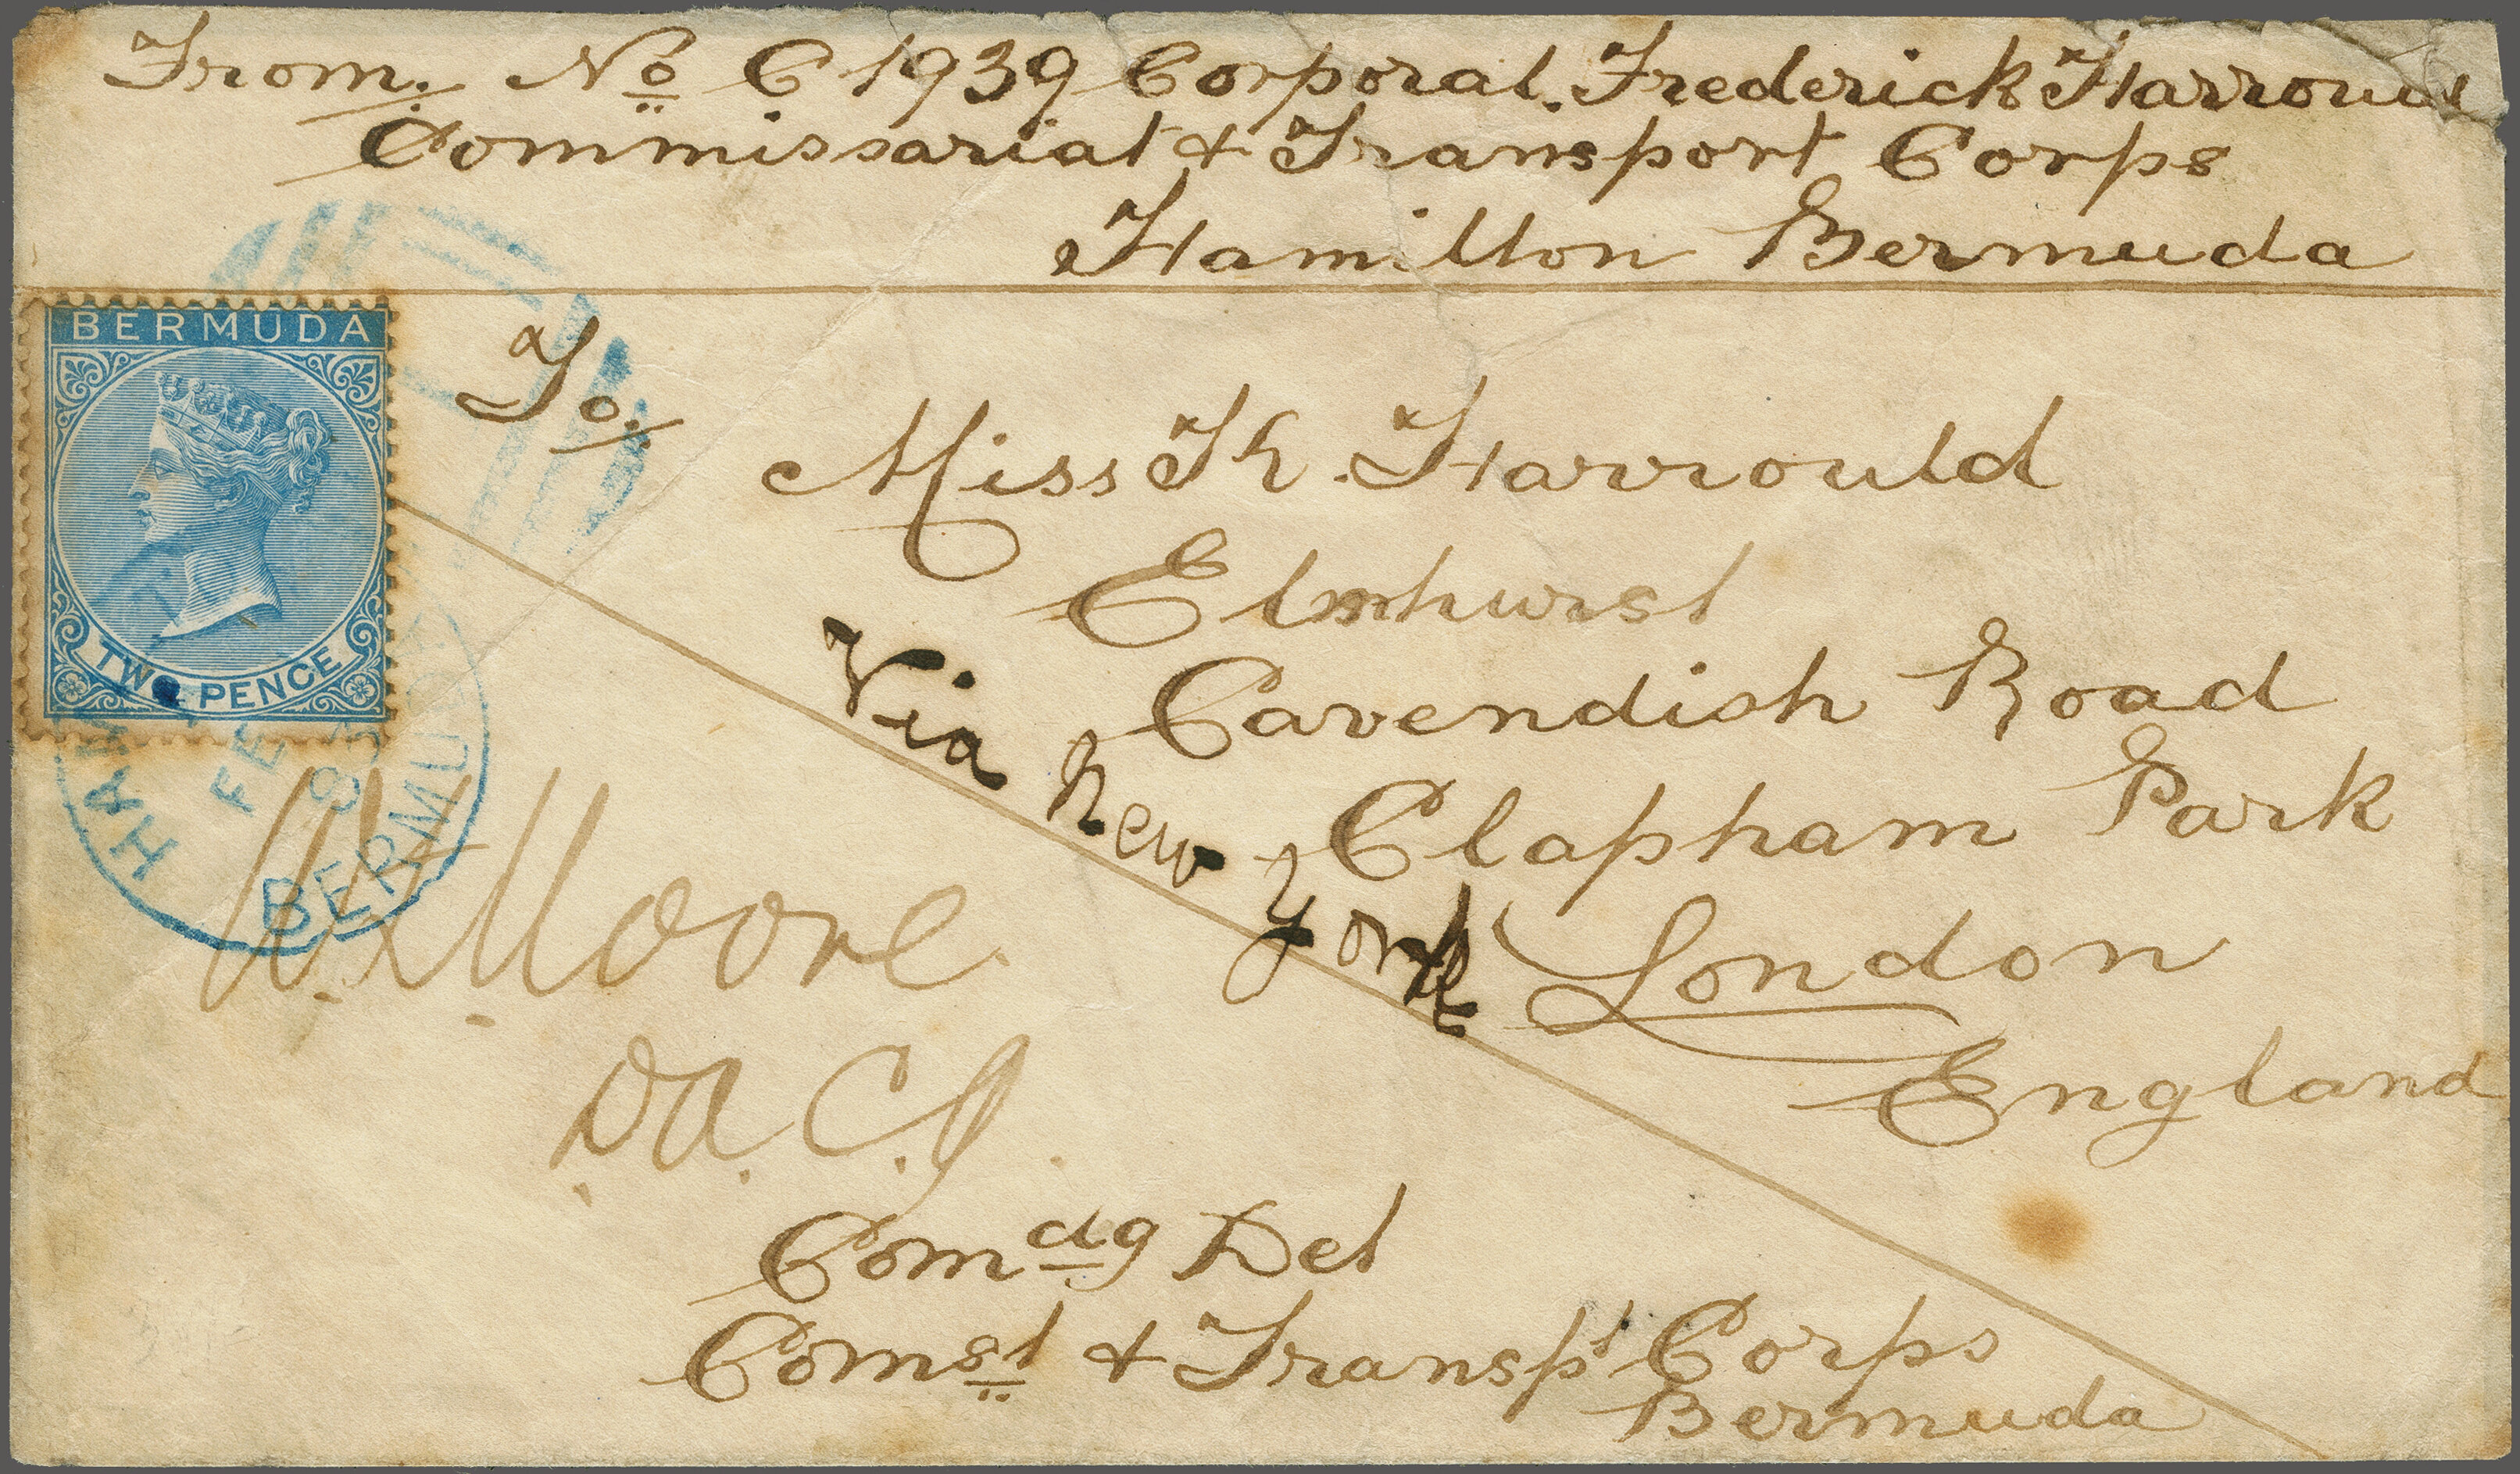 From. No C 1939 Corporal. Frederick
Commissariat & Transport Corps
Hamilton Bermuda
BERMUDA
TWO PENCE
To.
Miss K. Harrould
Elmhurst
Cavendish Road
Clapham Park
London
England
Via New York
HAM
FE
BERMUDA
W. Moore
D.A.C.G.
Comdg Det
Comst & Transpt Corps
Bermuda